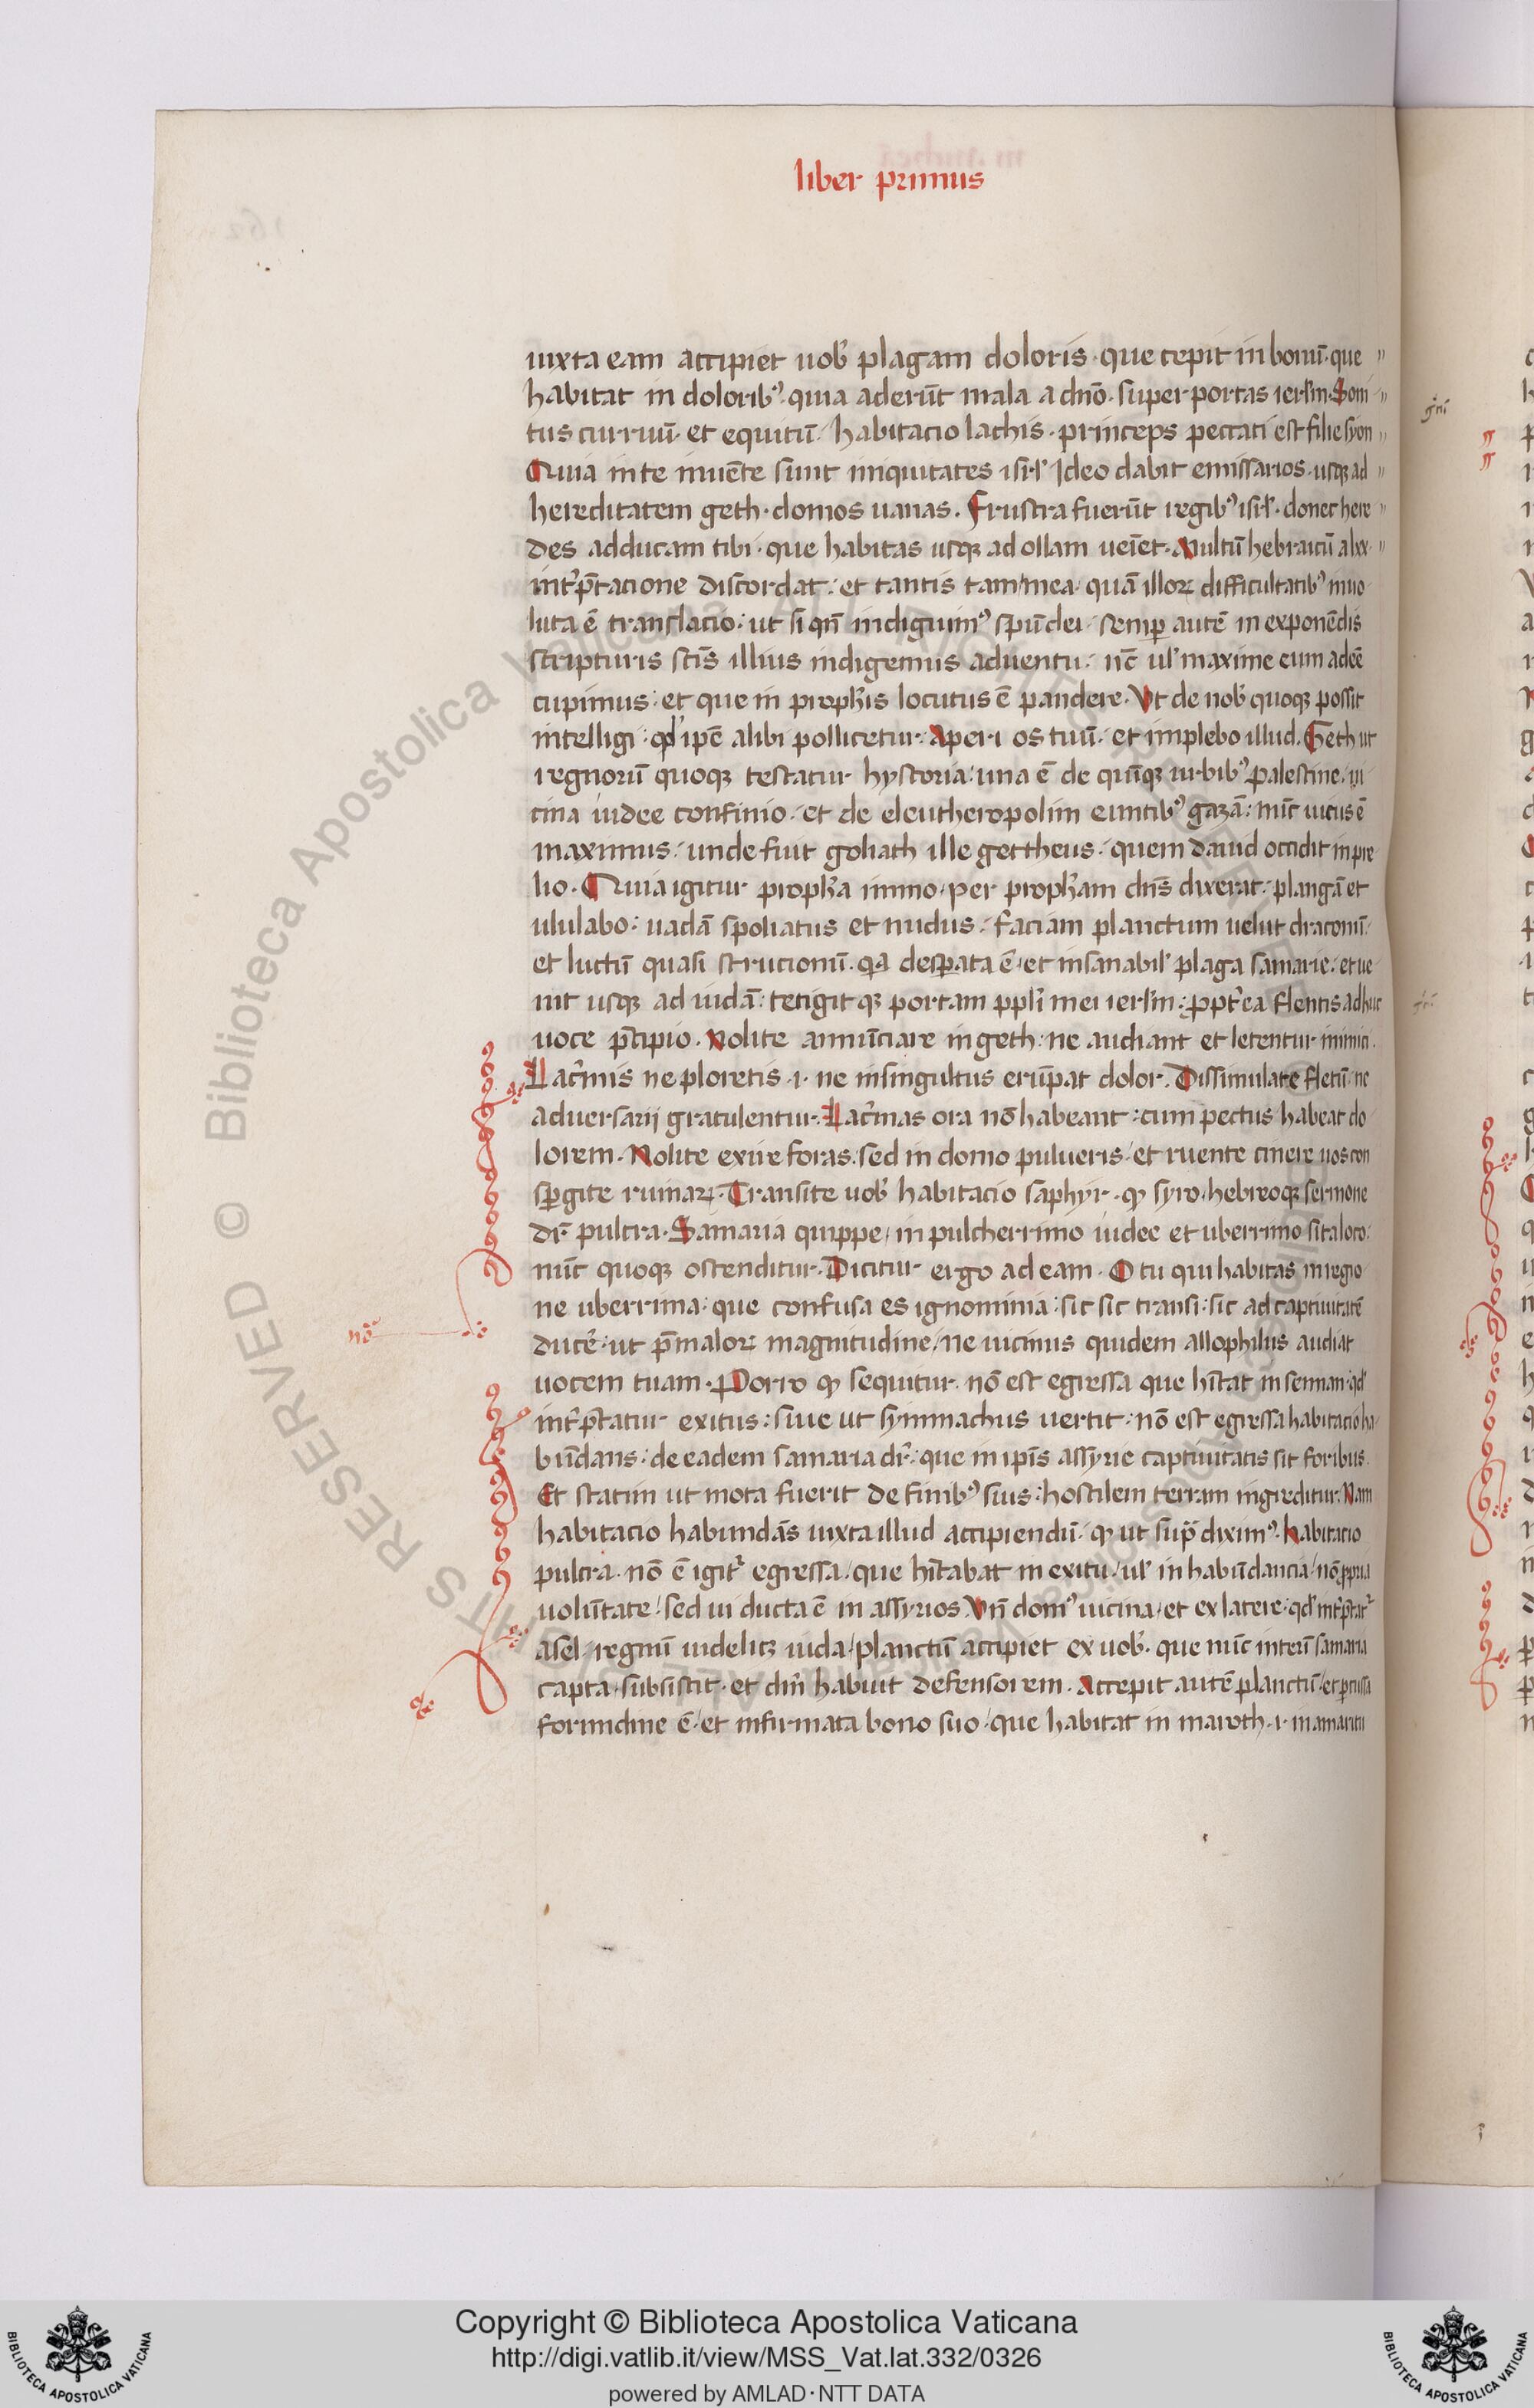 liber primus
iuxta eam accipiet uob̕ plagam doloris · que cepit in bonū · que
habitat in dolorib᾿ · quia aderūt mala a dnō · super portas ierl̄m · Soni
tus curruū · et equitū · habitacio lachis · princeps peccati est filie syon
Quia in te inuēte sunt iniquitates isrl̕ Ideo dabit emissarios · usqꝫ ad
hereditatem geth · domos uanas · Frustra fuerūt regib᾿ isrl̕ · donec here
des adducam tibi · que habitas usqꝫ ad ollam ueīet · Multū hebraicū a lxx ·
int̕p̄tacione discordat : et tantis tam mea quā illoꝝ difficultatib᾿ inuo
luta ē translacio : ut si qn̄ indiguim᾿ spū dei · semꝑ autē in exponēdis
scripturis sc̄is illius indigemus aduentu · nc̄ ul̕ maxime eum adeē
cupimus : et que in proph̕is locutus ē pandere · Vt de nob̕ quoqꝫ possit
intelligi : qd̕ ipē alibi pollicetur · Aperi os tuū · et implebo illud · Geth ut
regnorū quoqꝫ testatur hystoria : una ē de quīqꝫ urbib᾿ palestine · ui
cina iudee confinio · et de eleutheropolim euntib᾿ gazā : nūc uicus ē
maximus · unde fuit goliath ille gettheus · quem dauid occidit in pre
lio · Quia igitur proph̕a immo per proph̕am dn̄s dixerat · plangā et
ululabo : uadā spoliatus et nudus · faciam planctum uelut draconū ·
et luctū quasi strucionū · qa desꝑata ē et insanabil̕ plaga samarie · et ue
nit usqꝫ ad iudā : tetigit qꝫ portam ppl̕i mei ierl̄m : ꝓpt̕ea flentis adhuc
uoce p̄cipio · Nolite annūciare in geth : ne audiant et letentur inimici ·
Lac̕mis ne ploretis · i · ne in singultus erūpat dolor · Dissimulate fletū · ne
aduersarij gratulentur · Lac̕mas ora nō habeant : cum pectus habeat do
lorem · Nolite exire foras : sed in domo pulueris · et ruente cinere uos con
sꝑgite ruinaꝝ · Transite uob̕ habitacio saphyr · qꝫ syro hebreoqꝫ sermone
dr̄ pulcra · Samaria quippe in pulcherrimo iudee et uberrimo sita loco ·
nūc quoqꝫ ostenditur · Dicitur ergo ad eam · O tu qui habitas in regio
ne uberrima : que confusa es ignominia : sic sic transi : sic ad captiuitatē
ducēr · ut p̄ maloꝝ magnitudine · ne uicinus quidem allophilus audiat
uocem tuam · Porro qꝫ sequitur · nō est egressa que hītat in sennan · qd̕
int̕p̄tatur exitus : siue ut symmachus uertit : nō est egressa habitacio ha
būdans : de eadem samaria dr̄ : que in ipīs assyrie captiuitatis sit foribus ·
Et statim ut mota fuerit de finib᾿ suis : hostilem terram ingreditur · Nam
habitacio habundās iuxta illud accipiendū · qꝫ ut sup̄ dixim᾿ · Habitacio
pulcra · nō ē igit̕ egressa · que hītabat in exitu · ul̕ in habūdancia · nō ꝓpria
uolūtate · sed ui ducta ē in assyrios · Vn̄ dom᾿ uicina · et ex latere · qd̕ int̕p̄tat̕
asel · regnū uidelicꝫ iuda · planctū accipiet ex uob̕ · que nūc interī samaria
capta · subsistit · et dn̄m habuit defensorem · Accepit autē planctū · et ꝑcussa
forundine ē · et infirmata bono suo · que habitat in maroth · i · in amaritu
nō
Copyright © Biblioteca Apostolica Vaticana
http://digi.vatlib.it/view/MSS_Vat.lat.332/0326
powered by AMLAD·NTT DATA